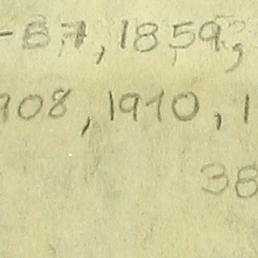 -87, 1859,
908, 1910, 1
38